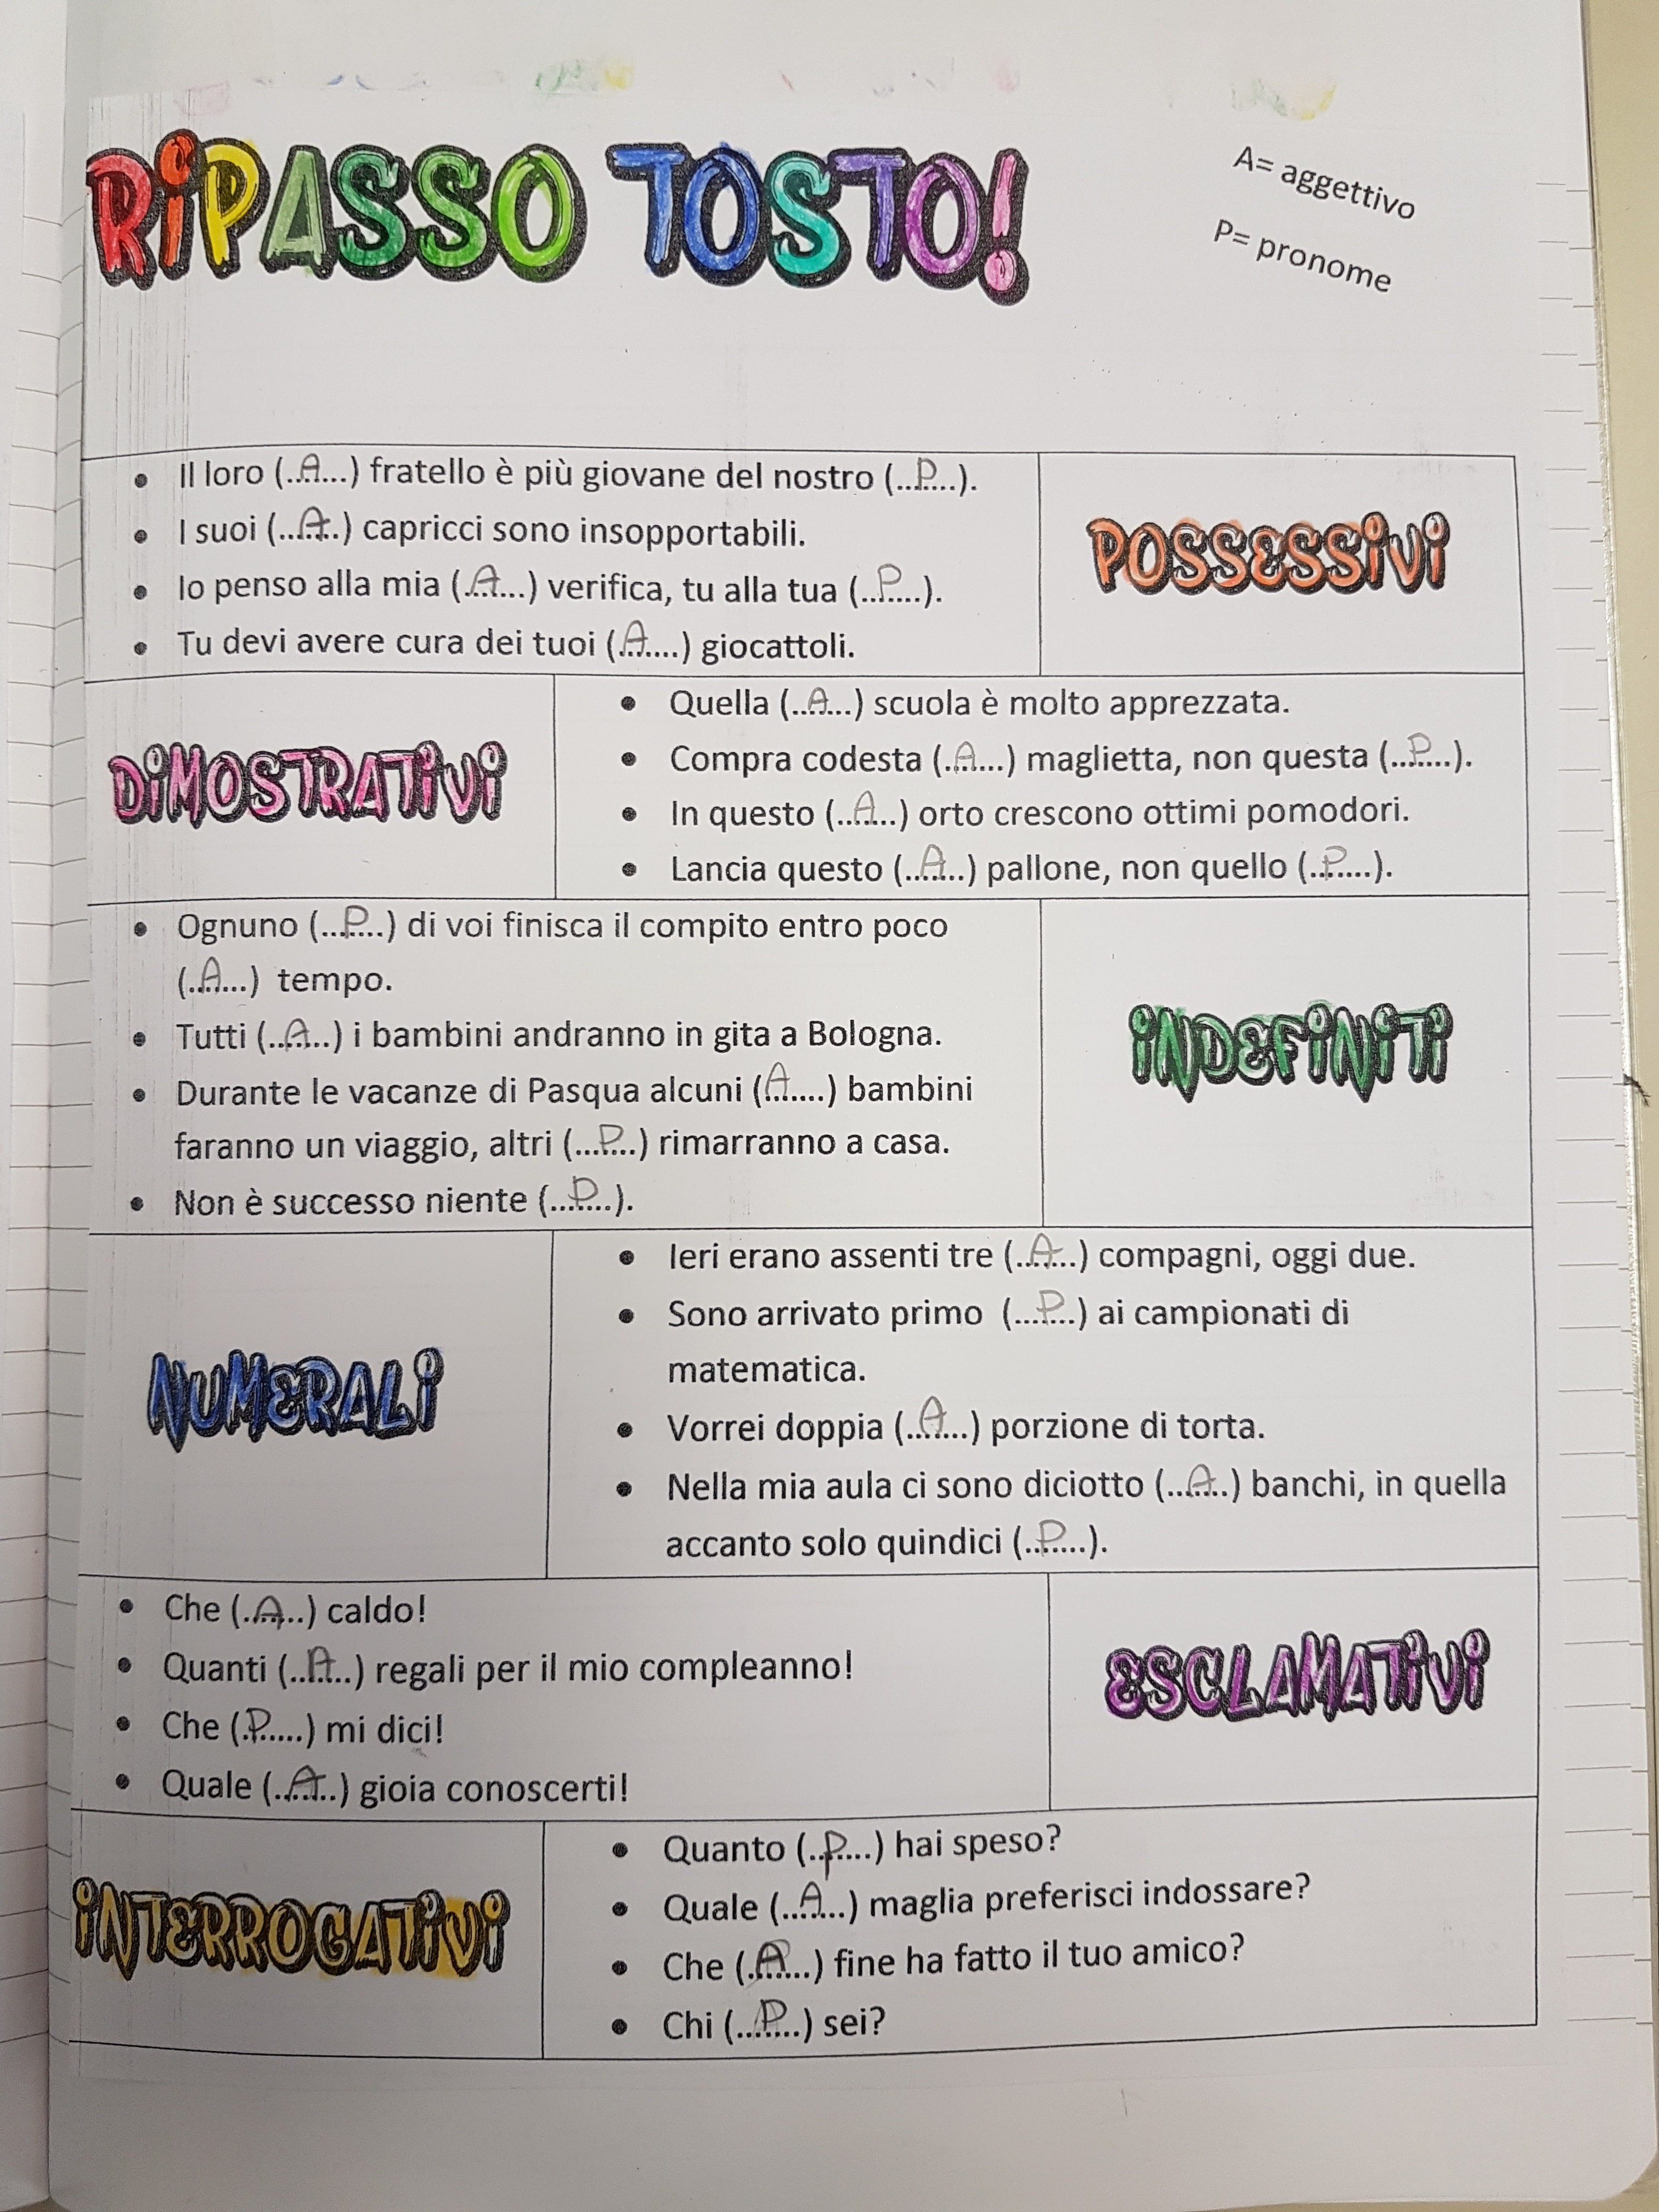 RIPASSO TOSTO!
A= aggettivo
P= pronome
• Il loro (..A...) fratello è più giovane del nostro (..P....).
• I suoi (...A.) capricci sono insopportabili.
• Io penso alla mia (.A...) verifica, tu alla tua (..P....).
• Tu devi avere cura dei tuoi (A.....) giocattoli.
POSSESSIVI
DIMOSTRATIVI
• Quella (..A...) scuola è molto apprezzata.
• Compra codesta (.A....) maglietta, non questa (..P....).
• In questo (...A...) orto crescono ottimi pomodori.
• Lancia questo (...A...) pallone, non quello (..P....).
• Ognuno (...P...) di voi finisca il compito entro poco
(..A...) tempo.
• Tutti (..A...) i bambini andranno in gita a Bologna.
• Durante le vacanze di Pasqua alcuni (A.....) bambini
faranno un viaggio, altri (...P...) rimarranno a casa.
• Non è successo niente (...P...).
INDEFINITI
NUMERALI
• Ieri erano assenti tre (...A...) compagni, oggi due.
• Sono arrivato primo (...P...) ai campionati di
matematica.
• Vorrei doppia (..A....) porzione di torta.
• Nella mia aula ci sono diciotto (...A..) banchi, in quella
accanto solo quindici (..P....).
• Che (..A...) caldo!
• Quanti (..A...) regali per il mio compleanno!
• Che (.P.....) mi dici!
• Quale (..A...) gioia conoscerti!
ESCLAMATIVI
INTERROGATIVI
• Quanto (..P....) hai speso?
• Quale (...A...) maglia preferisci indossare?
• Che (..A....) fine ha fatto il tuo amico?
• Chi (...P...) sei?